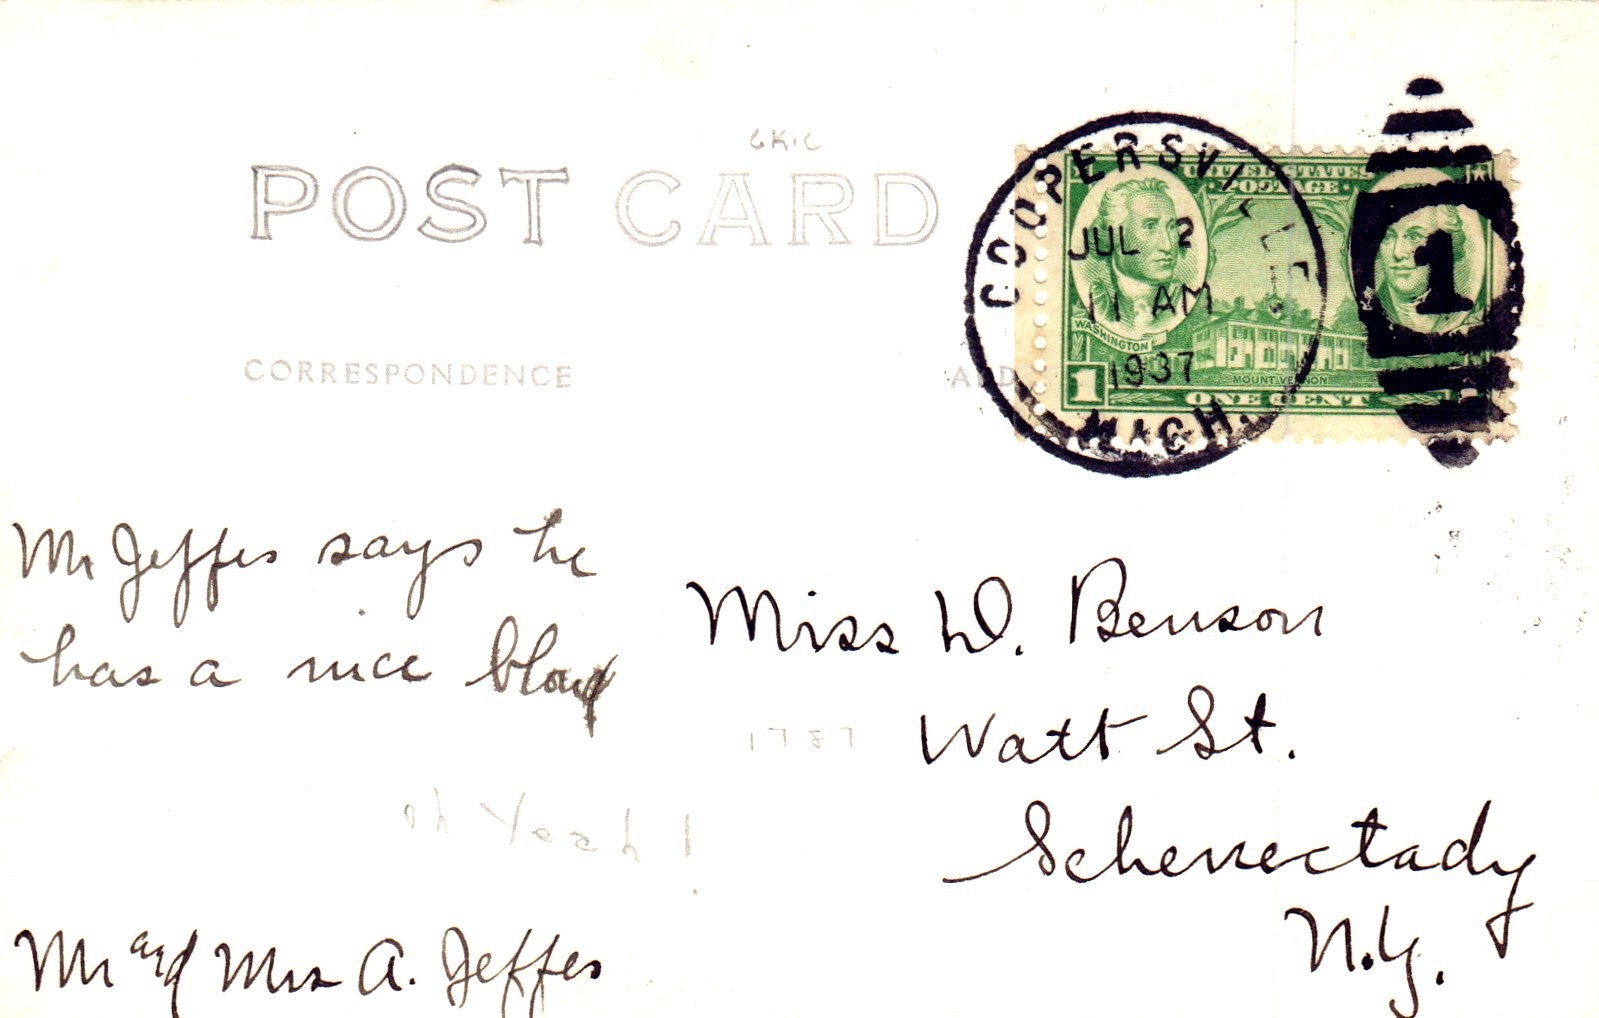 POST CARD
CORRESPONDENCE
COOPERSVILLE
JUL 2
11 AM
1937
MICH.
1
UNITED STATES
POSTAGE
WASHINGTON
MOUNT VERNON
1
ONE CENT
Mr Jeffes says he
has a nice
oh Yeah!
Mr and Mrs A. Jeffes
1787
Miss D. Benson
Watt St.
Schenectady
N.Y.